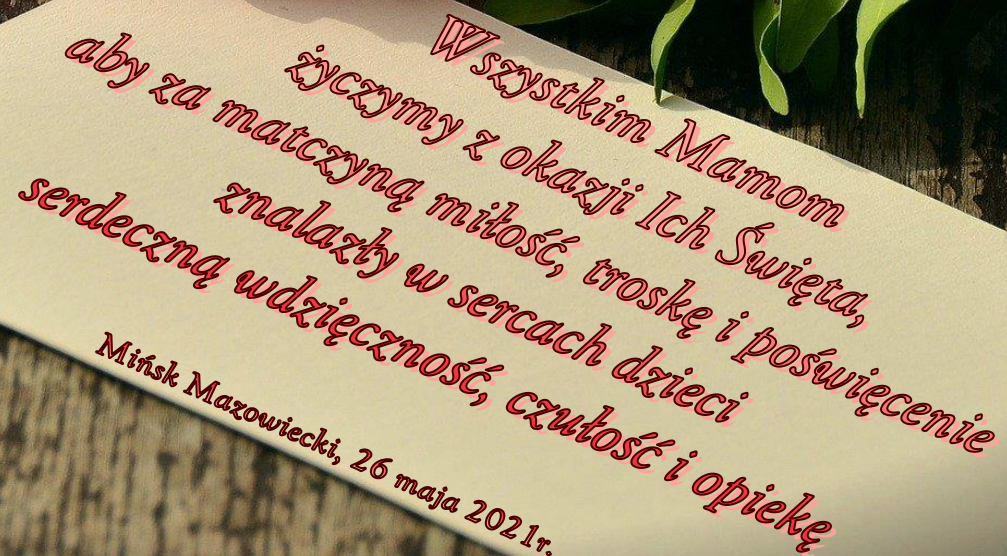 Wszystkim Mamom
życzymy z okazji Ich Święta,
aby za matczyną miłość, troskę i poświęcenie
znalazły w sercach dzieci
serdeczną wdzięczność, czułość i opiekę
Mińsk Mazowiecki, 26 maja 2021r.